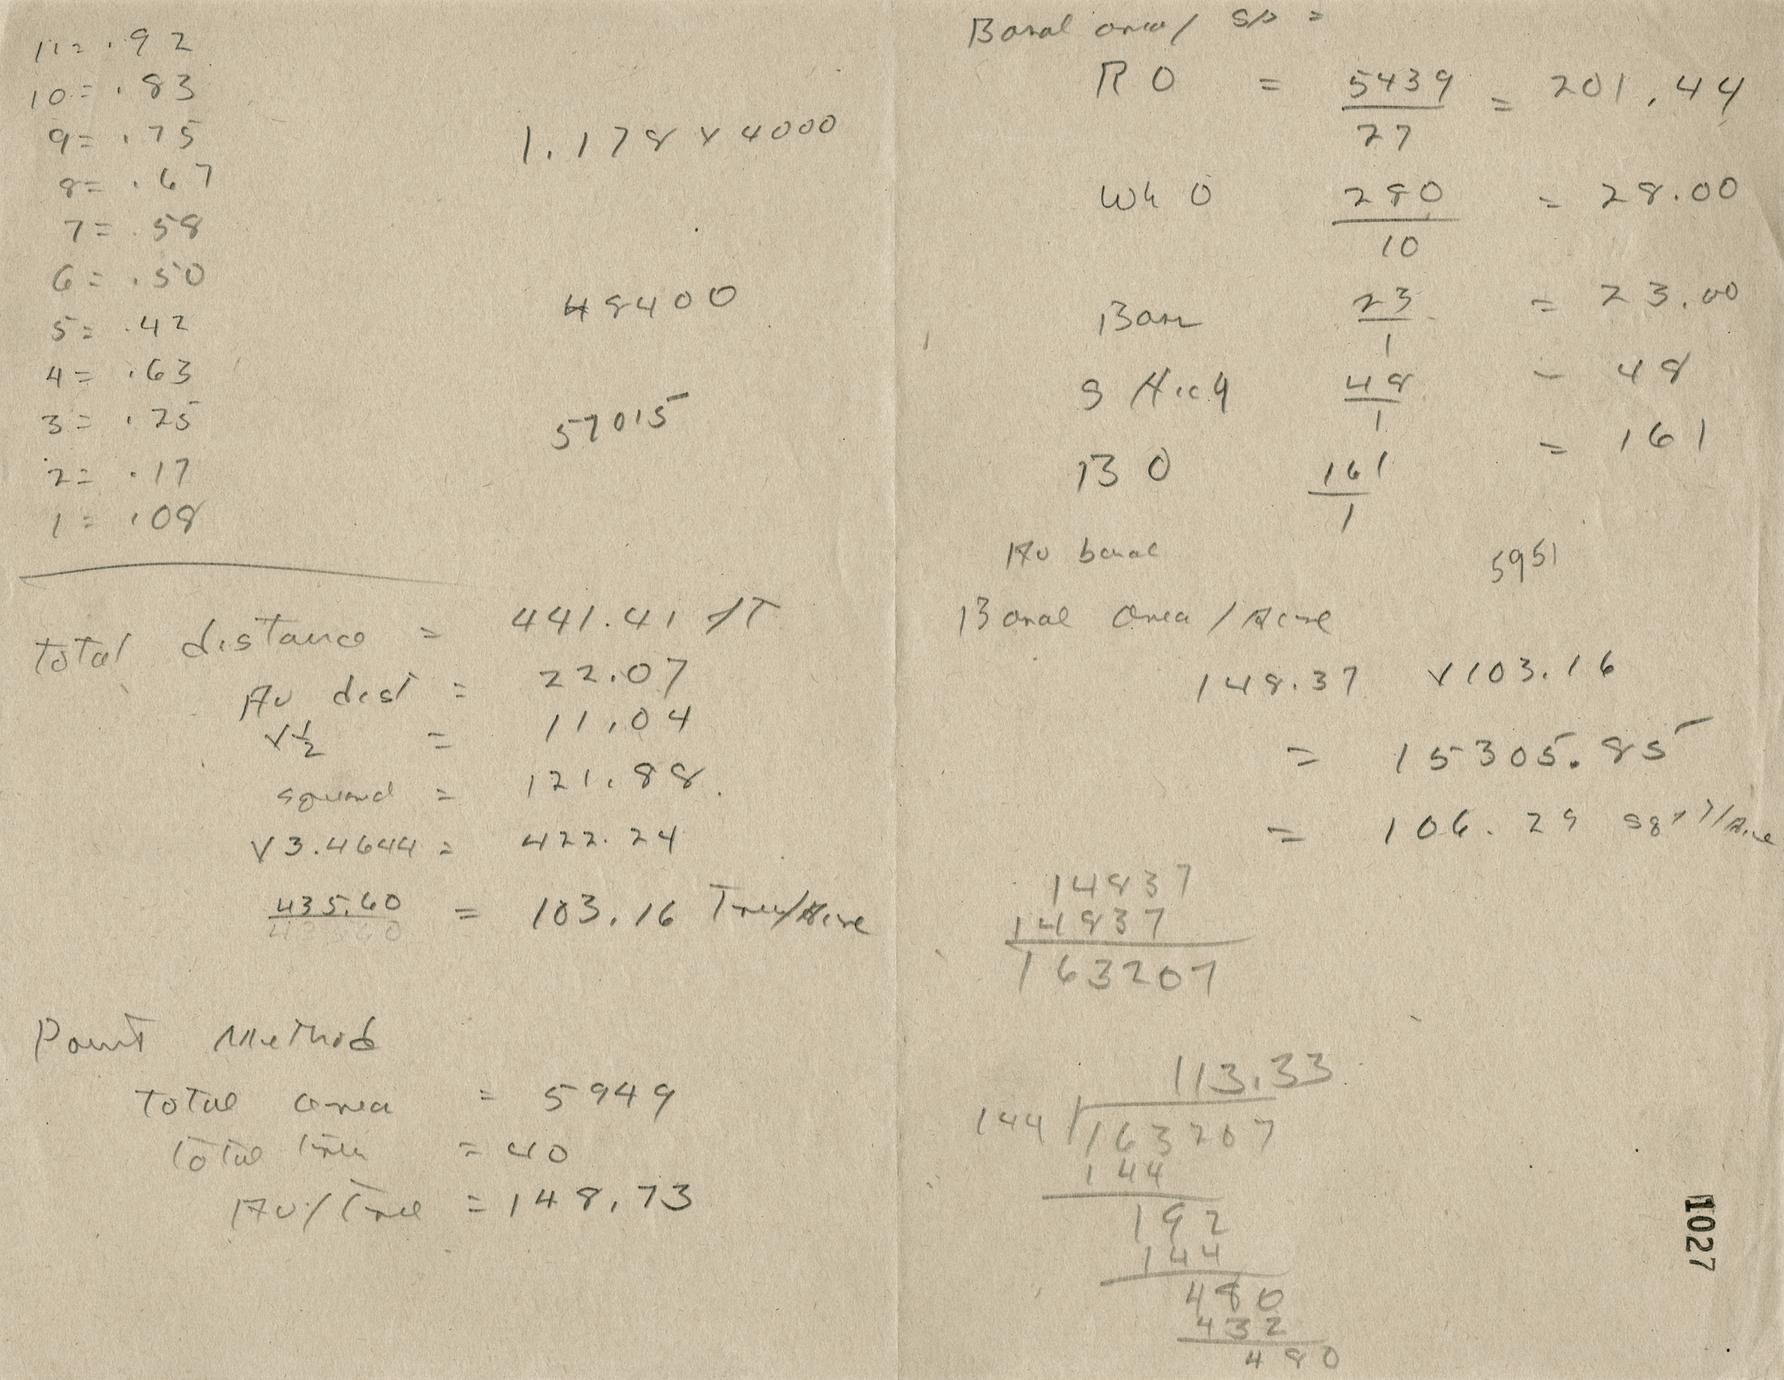 11 = .92
10 = .83
9 = .75
8 = .67
7 = .58
6 = .50
5 = .42
4 = .63
3 = .25
2 = .17
1 = .08
1.178 x 4000
48400
57015
Total distance = 441.41 FT
Av dist = 22.07
x ½ = 11.04
squared = 121.88.
x 3.4644 = 422.24
435.60
43560 = 103.16 Tree/Acre
Point Method
Total area = 5949
Total tree = 40
Av/Tree = 148.73
Basal area/ sp =
R O = 5439/27 = 201.44
Wh O 280/10 = 28.00
Bass 23/1 = 23.00
S Hick 48/1 - 48
B O 161/1 = 161
Av basal 5951
Basal area/Acre
148.37 x 103.16
= 15305.85
= 106.29 sqft/Acre
14837
14837
163207
113.33
144 163207
144
192
144
480
432
480
1027